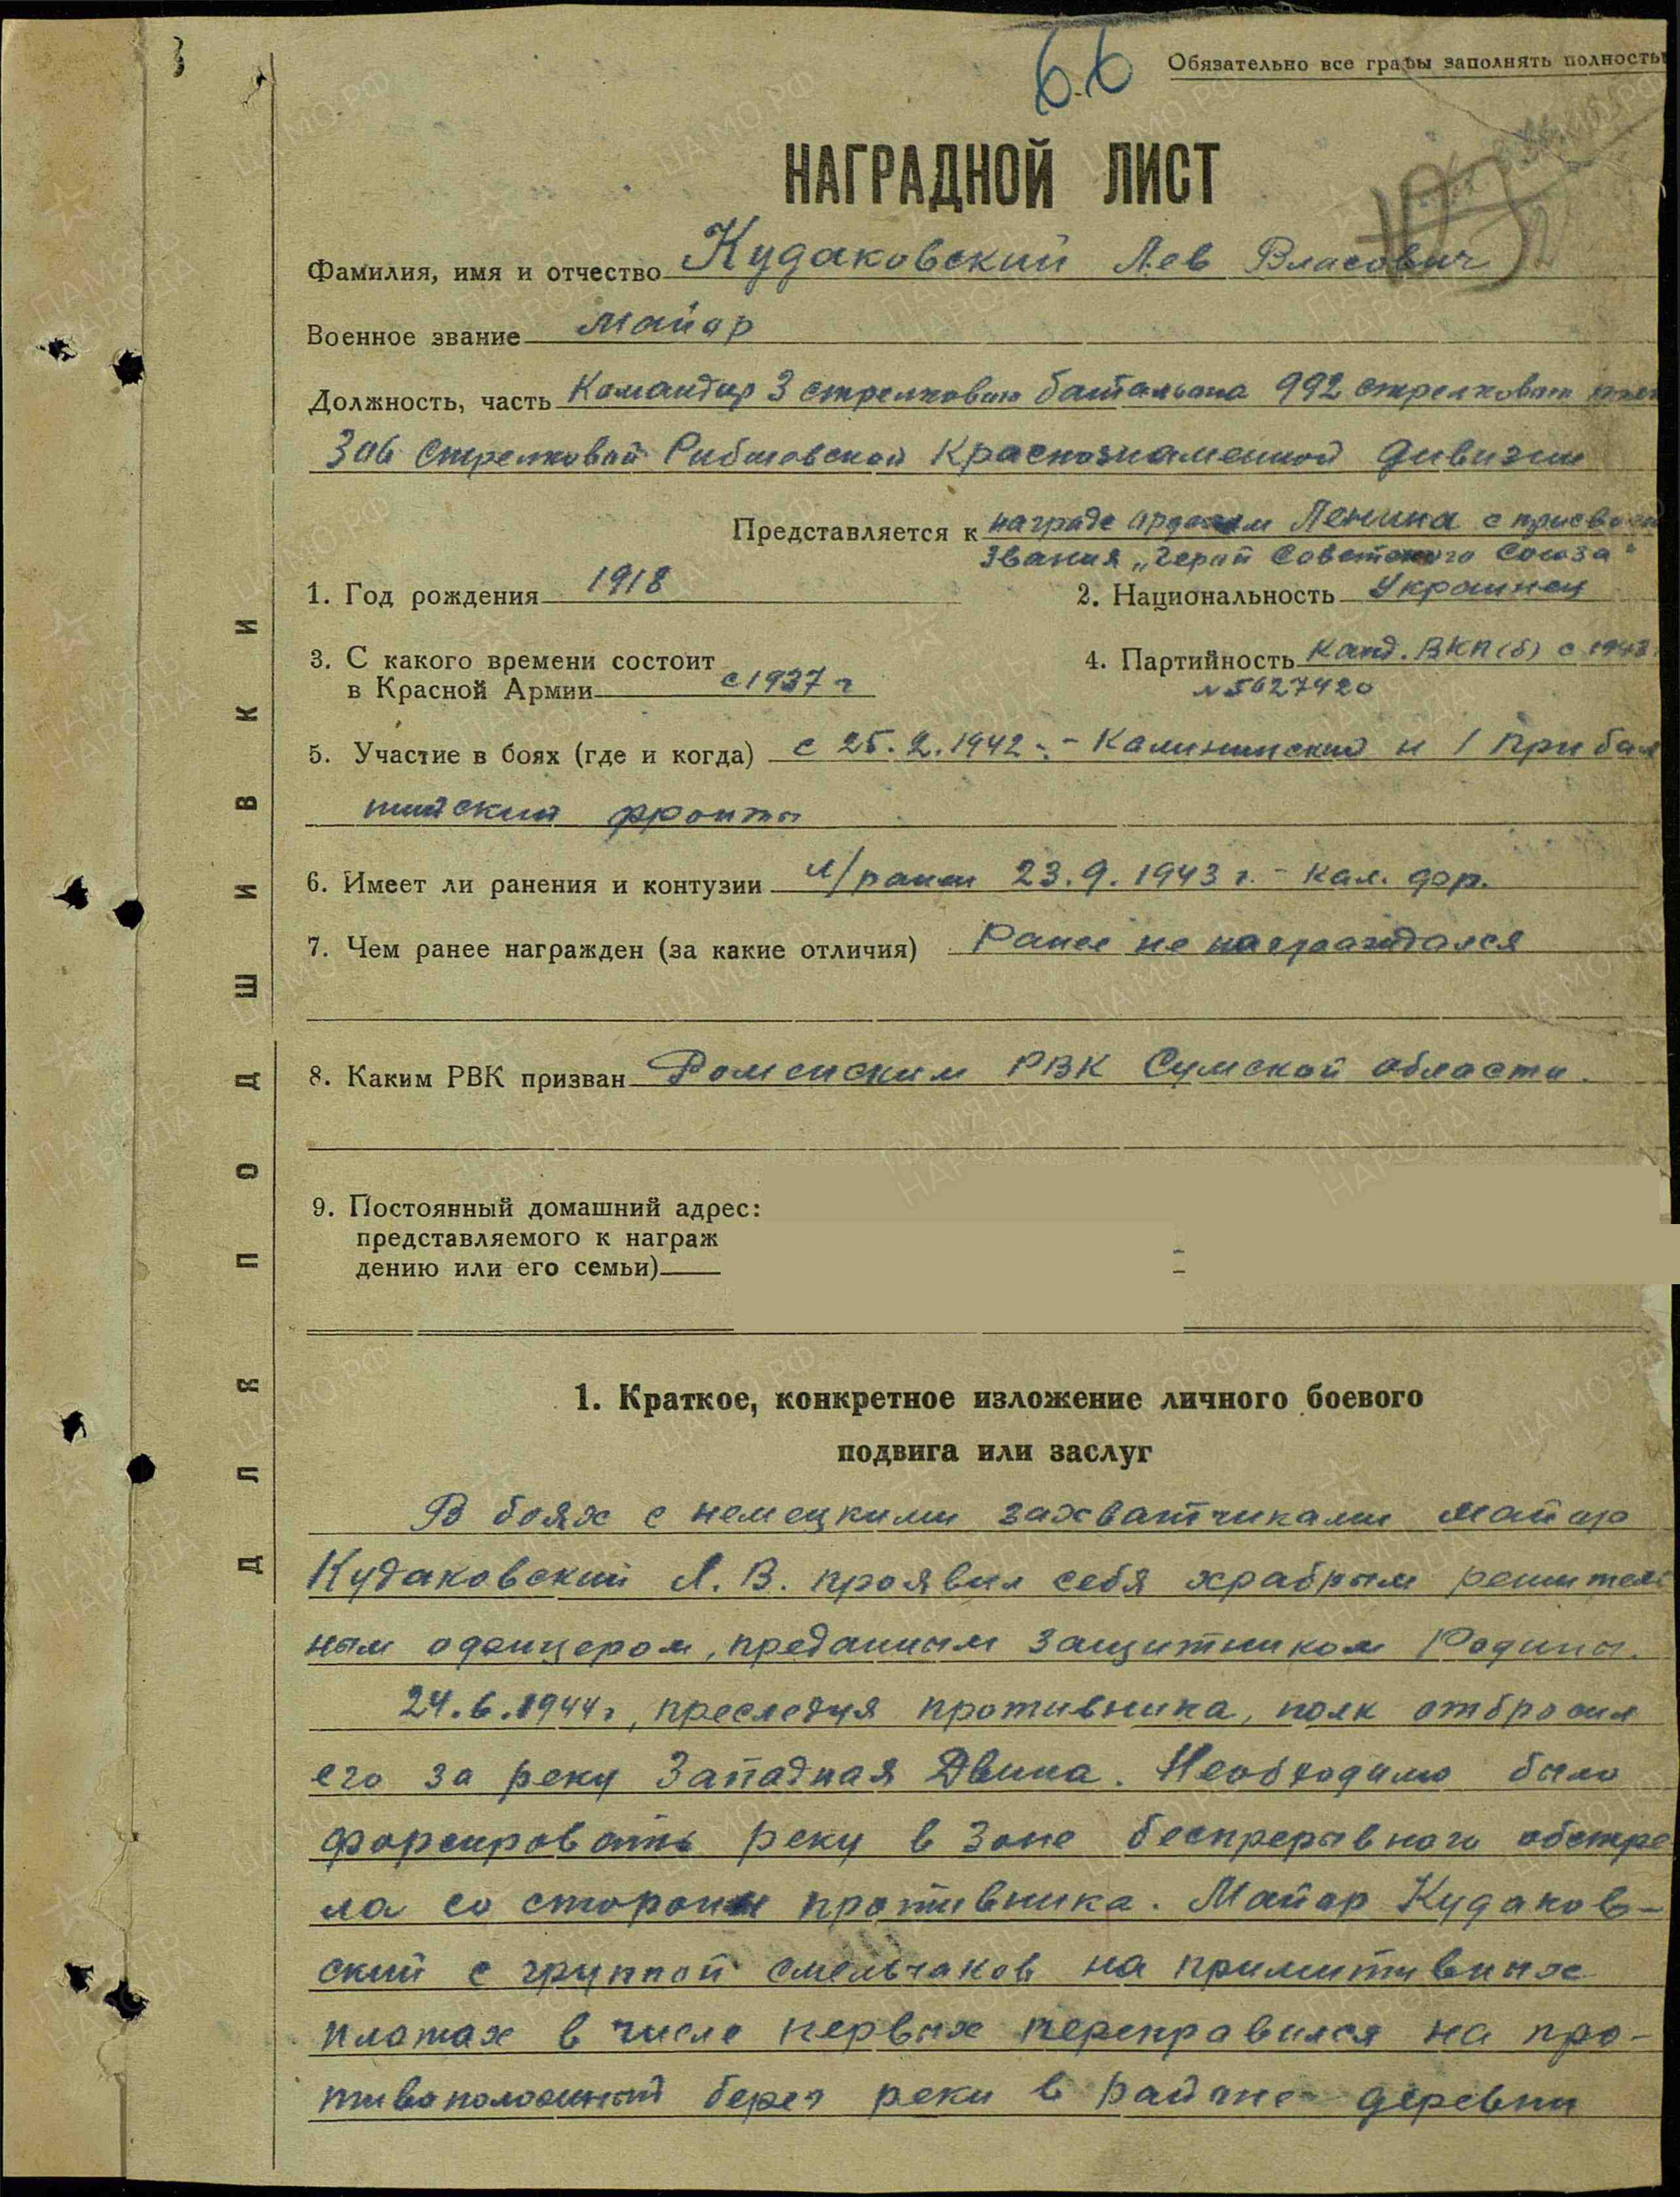 66
Обязательно все графы заполнять полность
НАГРАДНОЙ ЛИСТ
Фамилия, имя и отчество Кудаковский Лев Власович
Военное звание Майор
Должность, часть Командир 3 стрелкового батальона 992 стрелкового
306 Стрелковой Рибшевской Краснознаменной дивизии
Представляется к награде орденом Ленина с присвоен
звания „Герой Советского Союза“
1. Год рождения 1918
2. Национальность Украинец
3. С какого времени состоит
в Красной Армии с 1937 г
4. Партийность Канд. ВКП(б) с 1943
№5627420
5. Участие в боях (где и когда) с 25.2.1942 г. - Калининский и 1 Прибал
тийский фронты
6. Имеет ли ранения и контузии л/ранен 23.9.1943 г. - Кал. фр.
7. Чем ранее награжден (за какие отличия) Ранее не награждался
8. Каким РВК призван Роменским РВК Сумской области.
9. Постоянный домашний адрес:
представляемого к награж
дению или его семьи)
ДЛЯ ПОДШИВКИ
1. Краткое, конкретное изложение личного боевого
подвига или заслуг
В боях с немецкими захватчиками майор
Кудаковский Л.В. проявил себя храбрым решитель
ным офицером, преданным защитником Родины.
24.6.1944г, преследуя противника, полк отбросил
его за реку Западная Двина. Необходимо было
форсировать реку в зоне беспрерывного обстре
ла со стороны противника. Майор Кудаков-
ский с группой смельчаков на примитивных
плотах в числе первых переправился на про-
тивоположный берег реки в районе деревни